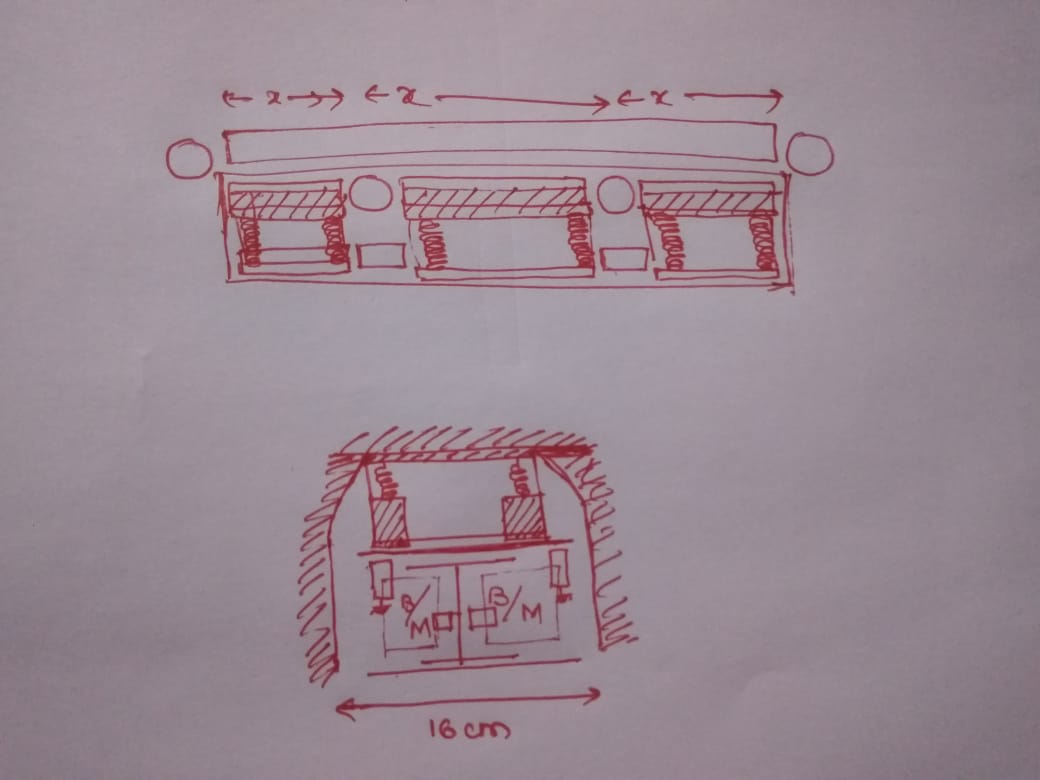 x x x
B/M B/M
16 cm